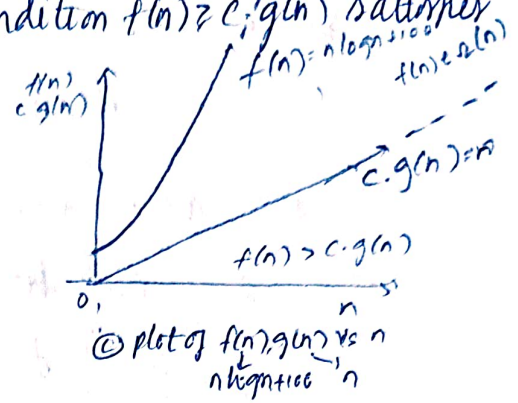 ndition f(n) ≥ c.g(n) satisfies
f(n) = nlogn+100
f(n) ∈ Ω(n)
f(n)
c g(n)
c.g(n) = n
f(n) > c.g(n)
0,
n
ⓒ plot of f(n), g(n) vs n
nlogn+100 n